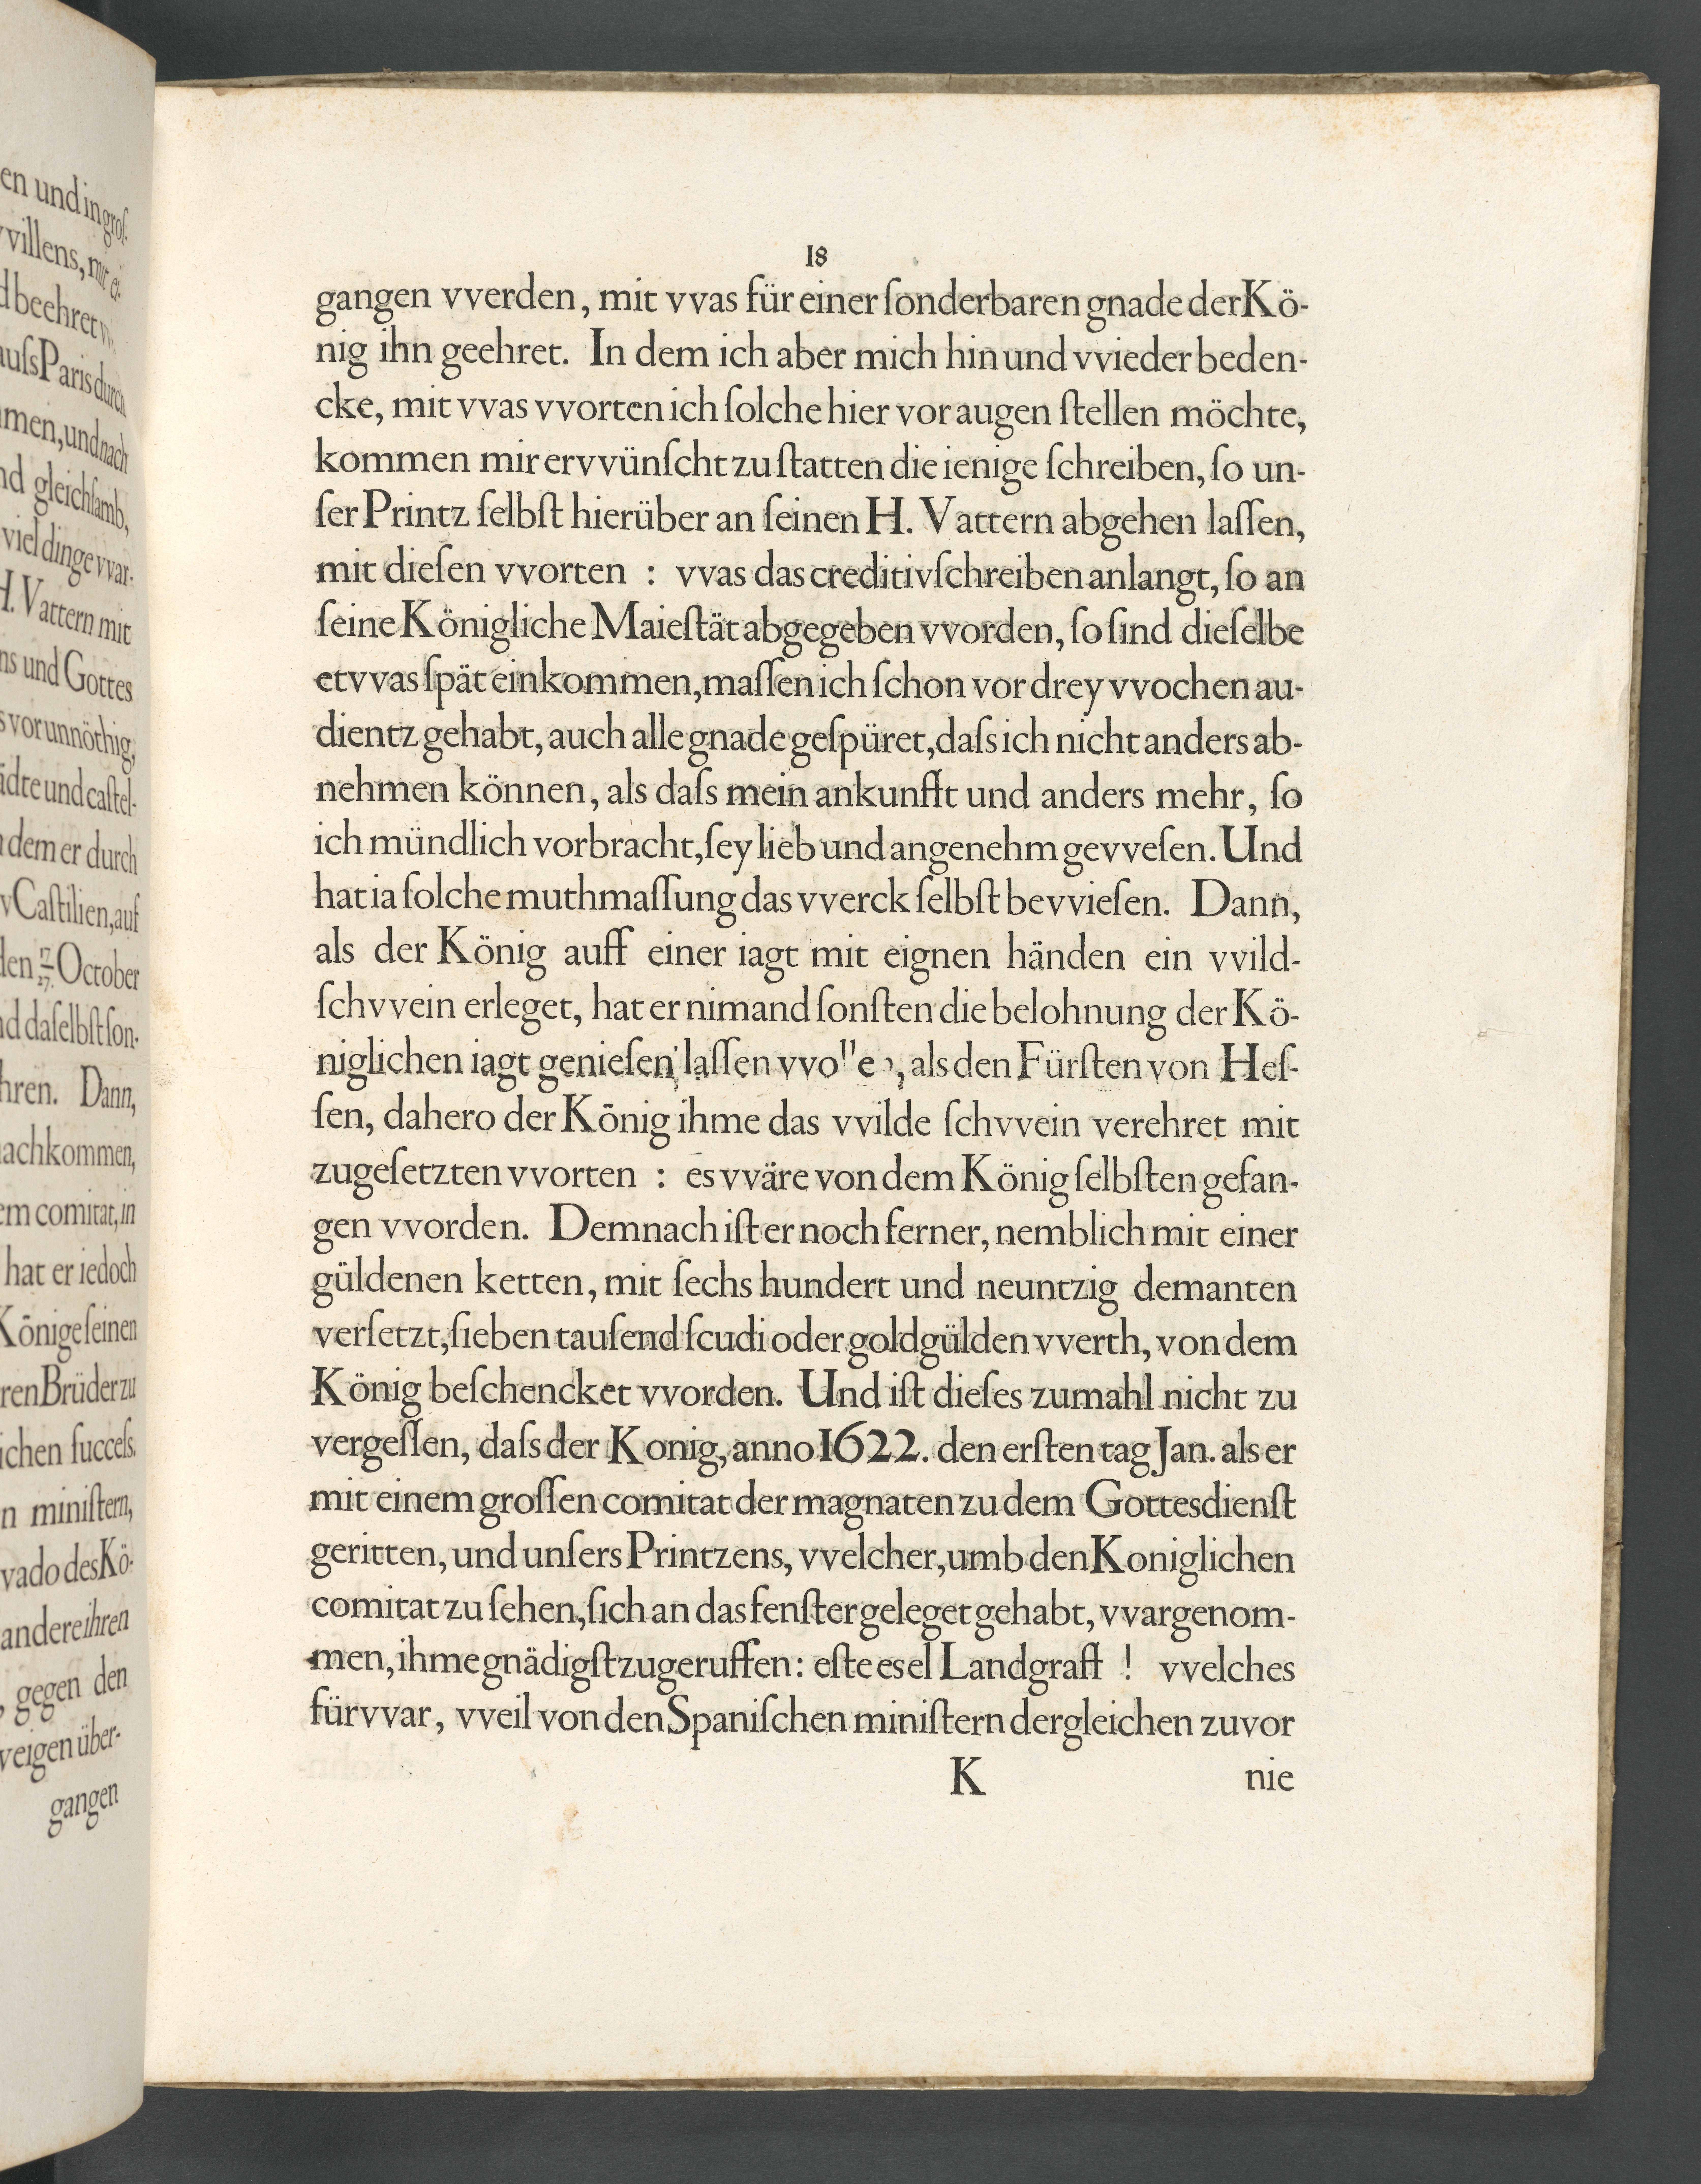 18
gangen vverden, mit vvas für einer ſonderbaren gnade der Kö-
nig ihn geehret. In dem ich aber mich hin und vvieder beden-
cke, mit vvas vvorten ich ſolche hier vor augen ſtellen möchte,
kommen mir ervvünſcht zu ſtatten die ienige ſchreiben, ſo un-
ſer Printz ſelbſt hierüber an ſeinen H. Vattern abgehen laſſen,
mit dieſen vvorten : vvas das creditivſchreiben anlangt, ſo an
ſeine Königliche Maieſtät abgegeben vvorden, ſo ſind dieſelbe
etvvas ſpät einkommen, maſſen ich ſchon vor drey vvochen au-
dientz gehabt, auch alle gnade geſpüret, daſs ich nicht anders ab-
nehmen können, als daſs mein ankunfft und anders mehr, ſo
ich mündlich vorbracht, ſey lieb und angenehm gevveſen. Und
hat ia ſolche muthmaſſung das vverck ſelbſt bevvieſen. Dann,
als der König auff einer iagt mit eignen händen ein vvild-
ſchvvein erleget, hat er nimand ſonſten die belohnung der Kö-
niglichen iagt genieſen laſſen , als den Fürſten von Heſ-
ſen, dahero der König ihme das vvilde ſchvvein verehret mit
zugeſetzten vvorten : es vväre von dem König ſelbſten gefan-
gen vvorden. Demnach iſt er noch ferner, nemblich mit einer
güldenen ketten, mit ſechs hundert und neuntzig demanten
verſetzt, ſieben tauſend ſcudi oder goldgülden vverth, von dem
König beſchencket vvorden. Und iſt dieſes zumahl nicht zu
vergeſſen, daſs der Konig, anno 1622. den erſten tag Jan. als er
mit einem groſſen comitat der magnaten zu dem Gottesdienſt
geritten, und unſers Printzens, vvelcher, umb den Koniglichen
comitat zu ſehen, ſich an das fenſter geleget gehabt, vvargenom-
men, ihme gnädigſt zugeruffen: eſte es el Landgraff ! vvelches
fürvvar, vveil von den Spaniſchen miniſtern dergleichen zuvor
K nie
en und in groſ-
vvillens, mit ei-
d beehret
auſs Paris durch
men, und nach
nd gleichſamb,
viel dinge vvar-
H. Vattern mit
ns und Gottes
s vor unnöthig,
ädte und caſtel-
n dem er durch
v Caſtilien, auf
den 17/27. October
nd daſelbſt ſon-
hren. Dann,
nachkommen,
em comitat, in
hat er iedoch
Könige ſeinen
ren Brüder zu
ichen ſucceſs.
n miniſtern,
vado des Kö-
andere ihren
, gegen den
veigen über-
gangen